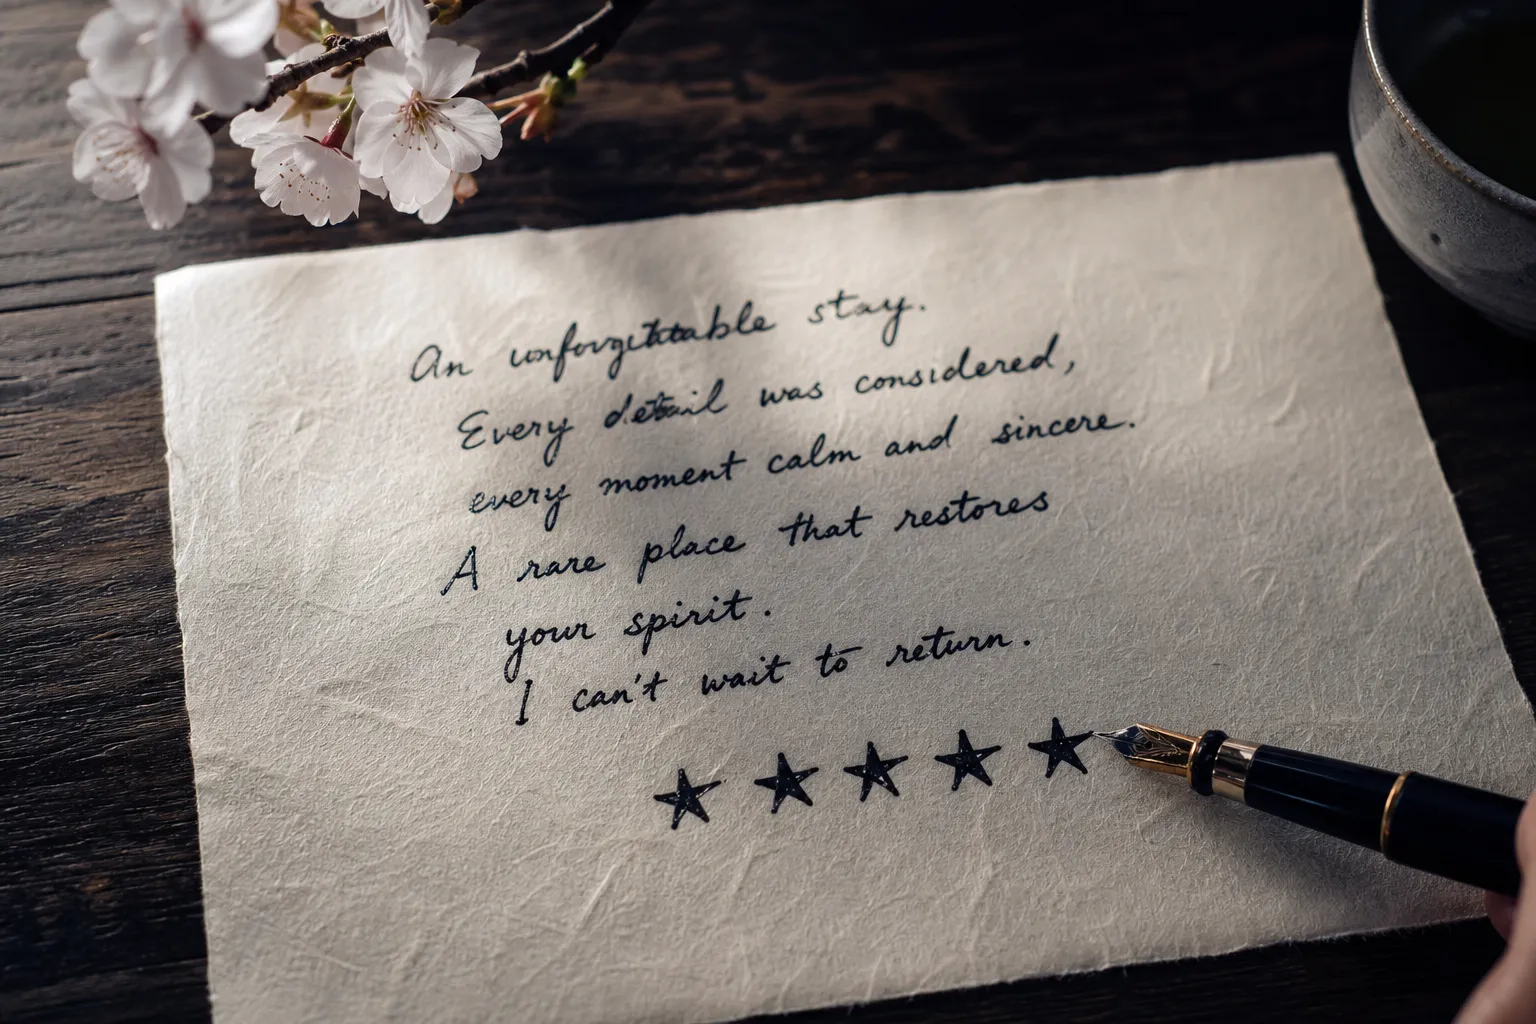 An unforgettable stay.
Every detail was considered,
every moment calm and sincere.
A rare place that restores
your spirit.
I can't wait to return.
★★★★★